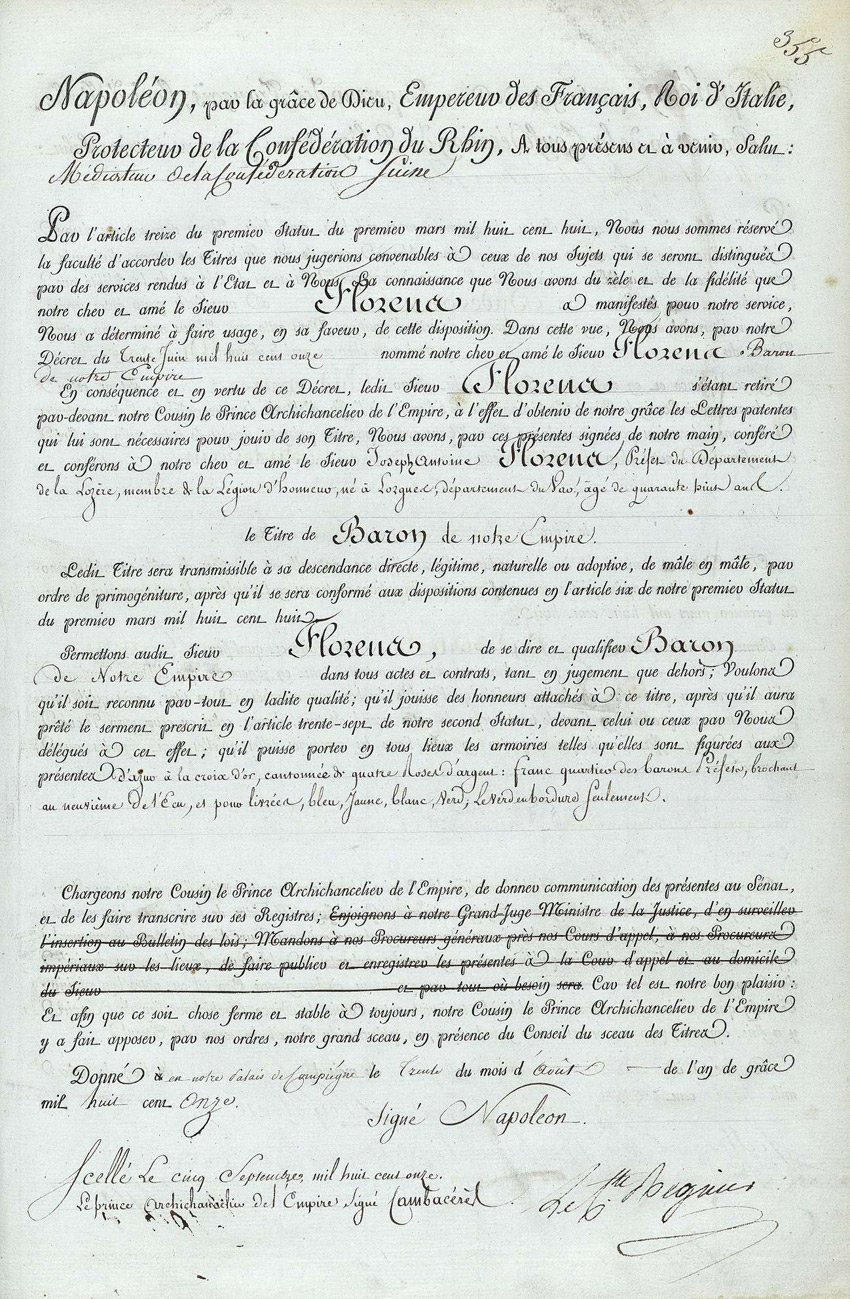 355
Napoléon, par la grâce de Dieu, Empereur des Français, Roi d'Italie,
Protecteur de la Confédération du Rhin, A tous présens et à venir, Salut:
Mediateur de la Confédération Suisse
Par l'article treize du premier Statut du premier mars mil huit cent huit, Nous nous sommes réservé
la faculté d'accorder les Titres que nous jugerions convenables à ceux de nos Sujets qui se seront distingués
par des services rendus à l'Etat et à Nous. La connaissance que Nous avons du zèle et de la fidélité que
notre cher et amé le Sieur Florens a manifestés pour notre service,
Nous a déterminé à faire usage, en sa faveur, de cette disposition. Dans cette vue, Nous avons, par notre
Décret du Trente Juin mil huit cent onze nommé notre cher et amé le Sieur Florens Baron
de notre Empire
En conséquence et en vertu de ce Décret, ledit Sieur Florens s'étant retiré
par-devant notre Cousin le Prince Archichancelier de l'Empire, à l'effet d'obtenir de notre grâce les Lettres patentes
qui lui sont nécessaires pour jouir de son Titre, Nous avons, par ces présentes signées de notre main, conféré
et conférons à notre cher et amé le Sieur Joseph Antoine Florens, Préfet du Département
de la Lozère, membre de la Légion d'honneur, né à Lorgues, département du Var, âgé de quarante huit ans.
le Titre de Baron de notre Empire.
Ledit Titre sera transmissible à sa descendance directe, légitime, naturelle ou adoptive, de mâle en mâle, par
ordre de primogéniture, après qu'il se sera conformé aux dispositions contenues en l'article six de notre premier Statut
du premier mars mil huit cent huit.
Permettons audit Sieur Florens, de se dire et qualifier Baron
de Notre Empire dans tous actes et contrats, tant en jugement que dehors; Voulons
qu'il soit reconnu par-tout en ladite qualité; qu'il jouisse des honneurs attachés à ce titre, après qu'il aura
prêté le serment prescrit en l'article trente-sept de notre second Statut, devant celui ou ceux par Nous
délégués à cet effet; qu'il puisse porter en tous lieux les armoiries telles qu'elles sont figurées aux
présentes D'azur à la croix d'or, cantonnée de quatre Roses d'argent: franc quartier des barons Préfets, brochant
au neuvième de l'Ecu, et pour livrées, bleu, Jaune, blanc, Verd, Le Verd en bordure seulement.
Chargeons notre Cousin le Prince Archichancelier de l'Empire, de donner communication des présentes au Sénat,
et de les faire transcrire sur ses Registres; Enjoignons à notre Grand-Juge Ministre de la Justice, d'en surveiller
l'insertion au Bulletin des lois; Mandons à nos Procureurs généraux près nos Cours d'appel, à nos Procureurs
impériaux sur les lieux, de faire publier et enregistrer les présentes à la Cour d'appel et au domicile
du Sieur et par tout où besoin sera. Car tel est notre bon plaisir:
Et afin que ce soit chose ferme et stable à toujours, notre Cousin le Prince Archichancelier de l'Empire
y a fait apposer, par nos ordres, notre grand sceau, en présence du Conseil du sceau des Titres.
Donné à en notre Palais de Compiègne le Trente du mois d'Août de l'an de grâce
mil huit cent Onze.
Signé Napoleon.
Scellé Le cinq Septembre, mil huit cent onze.
Le prince archichancelier de l'Empire Signé Cambacérès
Le Cte Regnier